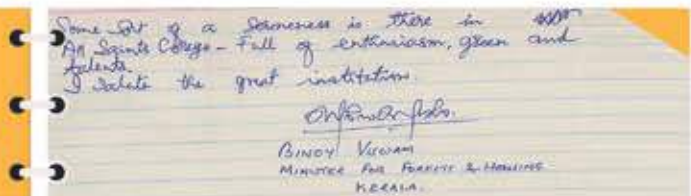 Some sort of a sereneness is there in
All Saints College - Full of enthusiasm, green and
talents.
I salute the great institution.
BINOY VISWAM
MINISTER FOR FORESTS & HOUSING
KERALA.